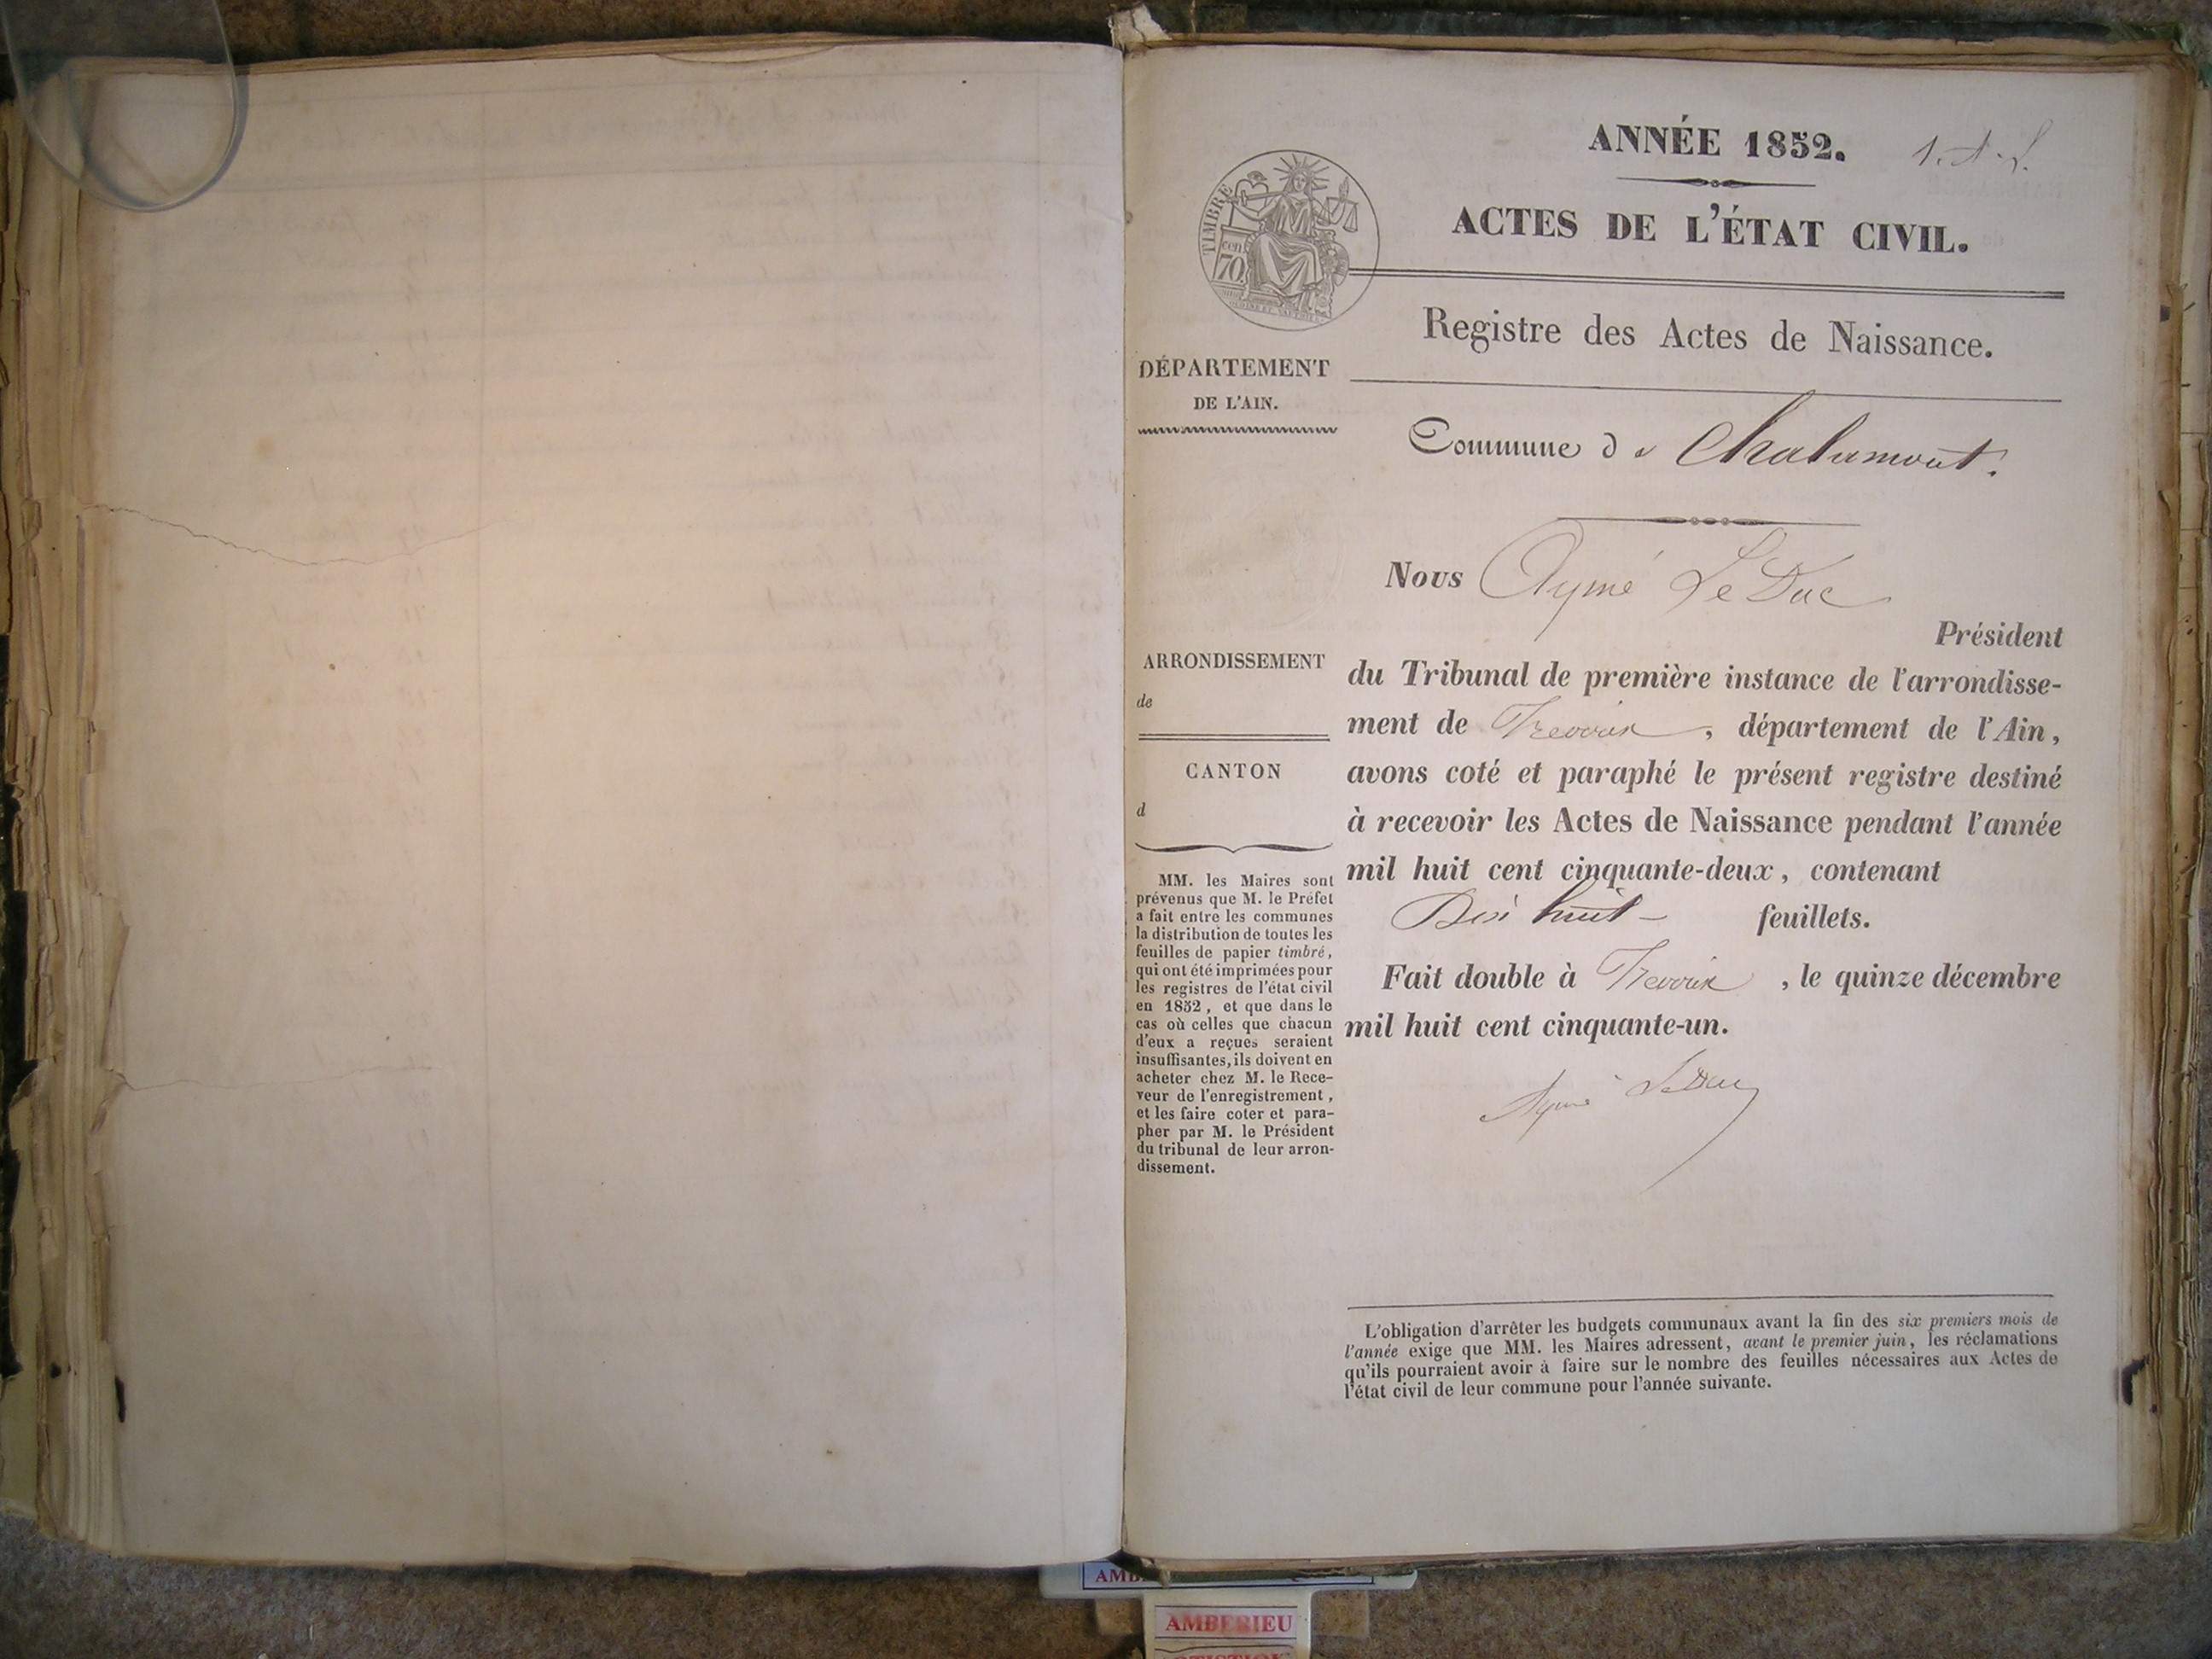 ANNÉE 1852.
1. A. L.
ACTES DE L'ÉTAT CIVIL.
TIMBRE
70 cen
Registre des Actes de Naissance.
DÉPARTEMENT
DE L'AIN.
Commune de Chalamont.
Nous Aymé Le Duc
Président
du Tribunal de première instance de l'arrondisse-
ment de Trevoux, département de l'Ain,
avons coté et paraphé le présent registre destiné
à recevoir les Actes de Naissance pendant l'année
mil huit cent cinquante-deux, contenant
Dix huit - feuillets.
Fait double à Trevoux, le quinze décembre
mil huit cent cinquante-un.
Aymé LeDuc
ARRONDISSEMENT
de
CANTON
d
MM. les Maires sont
prévenus que M. le Préfet
a fait entre les communes
la distribution de toutes les
feuilles de papier timbré,
qui ont été imprimées pour
les registres de l'état civil
en 1852, et que dans le
cas où celles que chacun
d'eux a reçues seraient
insuffisantes, ils doivent en
acheter chez M. le Rece-
veur de l'enregistrement,
et les faire coter et para-
pher par M. le Président
du tribunal de leur arron-
dissement.
L'obligation d'arrêter les budgets communaux avant la fin des six premiers mois de
l'année exige que MM. les Maires adressent, avant le premier juin, les réclamations
qu'ils pourraient avoir à faire sur le nombre des feuilles nécessaires aux Actes de
l'état civil de leur commune pour l'année suivante.
AMBERIEU